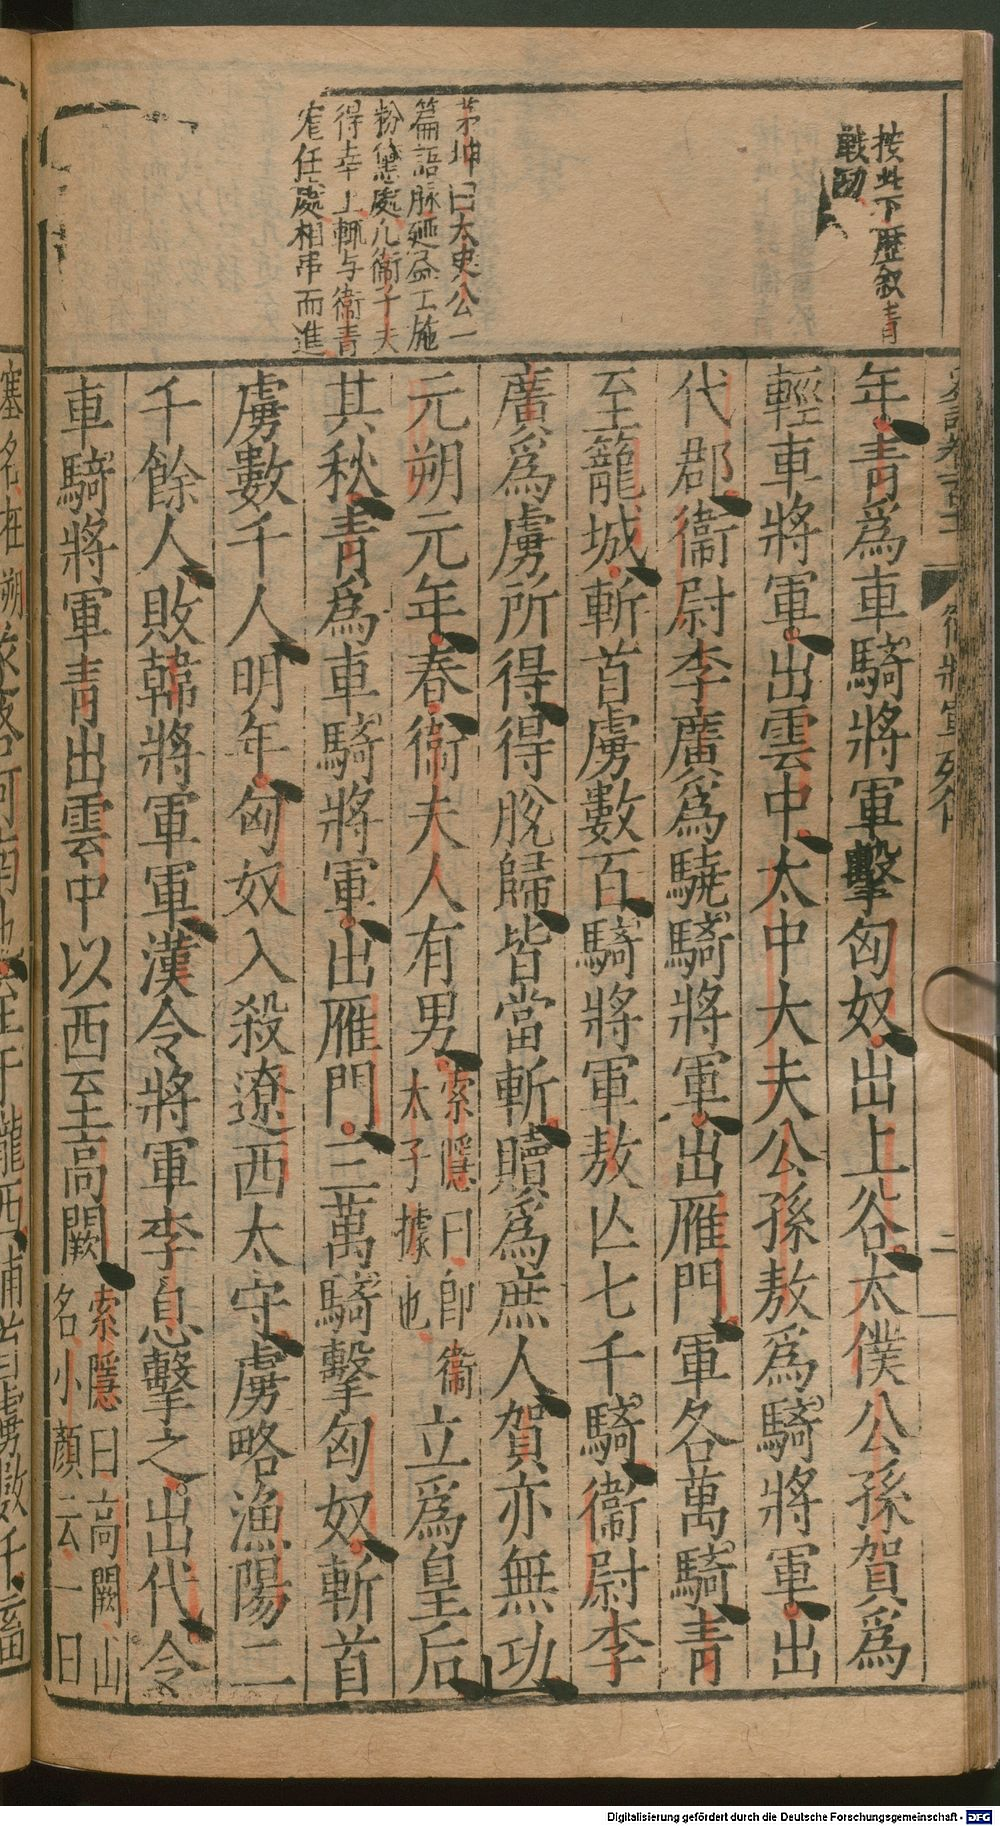 按此下歷叙青
戦功
茅坤曰太史公一
篇語脉逶益工施
粉黛處凢衞子夫
得幸上輒与衞青
寉任處相串而進
衞將軍列傳
二
年青爲車騎將軍擊匈奴出上谷太僕公孫賀爲
輕車將軍出雲中太中大夫公孫敖爲騎將軍出
代郡衞尉李廣爲驍騎將軍出雁門軍各萬騎青
至籠城斬首虜數百騎將軍敖亾七千騎衞尉李
廣爲虜所得得脫歸皆當斬贖爲庶人賀亦無功
元朔元年春衞夫人有男索隱曰即衞太子據也立爲皇后
其秋青爲車騎將軍出雁門三萬騎擊匈奴斬首
虜數千人明年匈奴入殺遼西太守虜略漁陽二
千餘人敗韓將軍軍漢令將軍李息擊之出代令
車騎將軍青出雲中以西至高闕索隱曰高闕山名小顏云一曰
塞名在朔
Digitalisierung gefördert durch die Deutsche Forschungsgemeinschaft - DFG